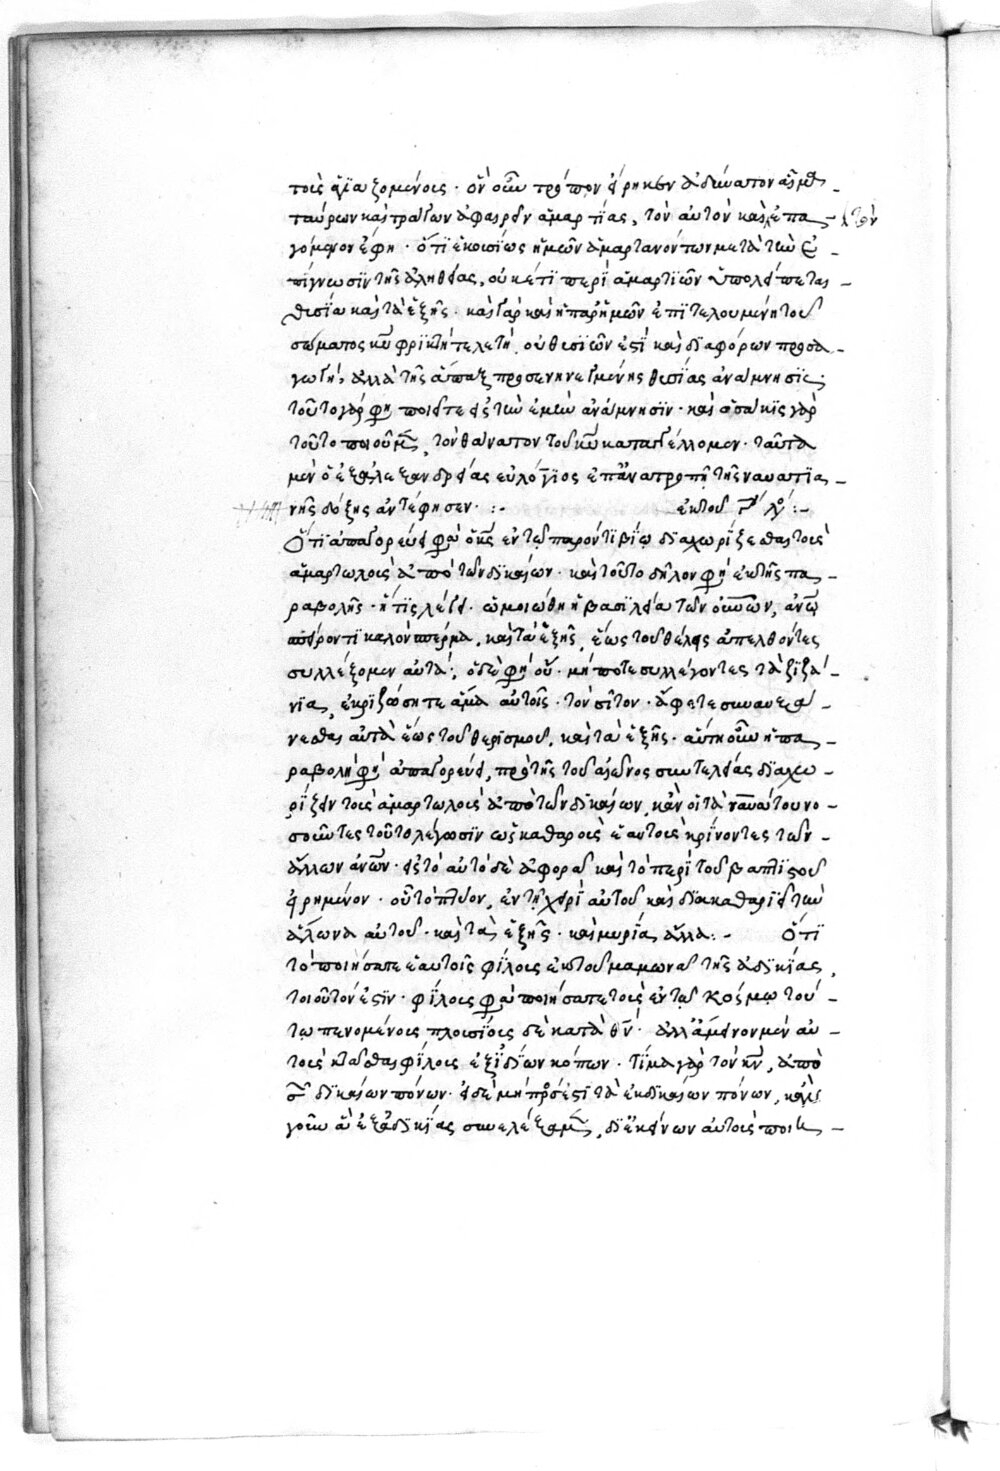 τοῖς ἁγιαζομένοις· ὃν οὖν τρόπον εἴρηκεν ἀδύνατον αἷμα
ταύρων καὶ τράγων ἀφαιρεῖν ἁμαρτίας, τὸν αὐτὸν καὶ ἐπα – τρὸν
γόμενον ἔφη· ὅτι ἑκουσίως ἡμῶν ἁμαρτανόντων μετὰ τὴν ἐ
πίγνωσιν τῆς ἀληθείας, οὐκέτι περὶ ἁμαρτιῶν ὑπολείπεται –
θυσία καὶ τὰ ἑξῆς· καὶ γὰρ καὶ ἡ παρ' ἡμῶν ἐπιτελουμένη τοῦ
σώματος κυ φρικτὴ τελετὴ, οὐ θυσιῶν ἐστὶ καὶ διαφόρων προσα –
γωγὴ, ἀλλὰ τῆς ἅπαξ προσενηνεγμένης θυσίας ἀνάμνησις·
τοῦτο γάρ φη ποιεῖτε εἰς τὴν ἐμὴν ἀνάμνησιν· καὶ ὁσάκις γὰρ
τοῦτο ποιοῦμεν, τὸν θάνατον τοῦ κυ καταγγέλλομεν· ταῦτα
μὲν ὁ ἐξ ἀλεξανδρείας εὐλόγιος ἐπ' ἀνατροπῇ τῆς ναυατια –
νῆς δόξης ἀντέφησεν· :- ἐκ τοῦ γ' λό :-
Ὅτι ἀπαγορεύει φησὶν ὁ κς ἐν τῷ παρόντι βίῳ διαχωρίζεσθαι τοὺς
ἁμαρτωλοὺς ἀπὸ τῶν δικαίων· καὶ τοῦτο δῆλον φη ἐκ τῆς πα –
ραβολῆς· ἥτις λέγει· ὡμοιώθη ἡ βασιλεία τῶν οὐνῶν, ἀνῳ
σπείροντι καλὸν σπέρμα, καὶ τὰ ἑξῆς, ἕως τοῦ θέλεις ἀπελθόντες
συλλέξομεν αὐτά· ὁ δέ φη οὔ· μήποτε συλλέγοντες τὰ ζιζά –
νια, ἐκριζώσητε ἅμα αὐτοῖς· τὸν σῖτον· ἄφετε συναυξά –
νεσθαι αὐτὰ ἕως τοῦ θερισμοῦ, καὶ τὰ ἑξῆς· αὕτη οὖν ἡ πα –
ραβολὴ φη ἀπαγορεύει, πρὸ τῆς τοῦ αἰῶνος συντελείας διαχω –
ρίζειν τοὺς ἁμαρτωλοὺς ἀπὸ τῶν δικαίων, κἂν οἱ τὰ ναυάτου νο –
σοῦντες τοῦτο λέγωσιν ὡς καθαροὺς ἑαυτοὺς κρίνοντες τῶν –
ἄλλων ἀνων· εἰς τὸ αὐτὸ δὲ ἀφορᾷ καὶ τὸ περὶ τοῦ βαπτιστοῦ
εἰρημένον· οὗ τὸ πτύον, ἐν τῇ χειρὶ αὐτοῦ καὶ διακαθαριεῖ τὴν
ἅλωνα αὐτοῦ· καὶ τὰ ἑξῆς· καὶ μυρία ἄλλα :- Ὅτι
τὸ ποιήσατε ἑαυτοῖς φίλους ἐκ τοῦ μαμωνᾶ τῆς ἀδικίας,
τοιοῦτόν ἐστιν· φίλους φησὶ ποιήσατε τοὺς ἐν τῷ κόσμῳ τού –
τῳ πενομένους πλουσίους δὲ κατὰ θν· ἀλλ' ἄμεινον μὲν αὐ –
τοὺς κτᾶσθαι φίλους ἐξ ἰδίων κόπων· τίμα γὰρ τὸν κν, ἀπὸ
σῶν δικαίων πόνων· εἰ δὲ μὴ πρόσεστι τὰ ἐκ δικαίων πόνων, κἂν
γοῦν ἃ ἐξ ἀδικίας συνελέξαμεν, δι' ἐκείνων αὐτοὺς ποιη –